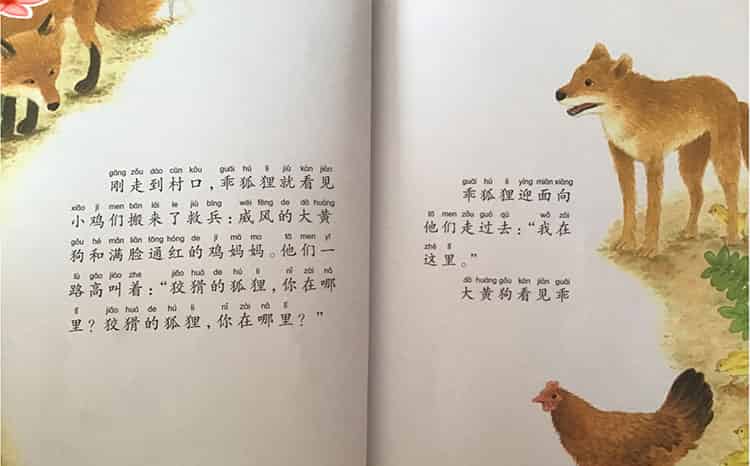 gāng zǒu dào cūn kǒu guāi hú li jiù kàn jiàn
刚走到村口，乖狐狸就看见
xiǎo jī men bān lái le jiù bīng wēi fēng de dà huáng
小鸡们搬来了救兵：威风的大黄
gǒu hé mǎn liǎn tōng hóng de jī mā ma tā men yí
狗和满脸通红的鸡妈妈。他们一
lù gāo jiào zhe jiǎo huá de hú li nǐ zài nǎ
路高叫着：“狡猾的狐狸，你在哪
lǐ jiǎo huá de hú li nǐ zài nǎ lǐ
里？狡猾的狐狸，你在哪里？”
guāi hú li yíng miàn xiàng
乖狐狸迎面向
tā men zǒu guò qù wǒ zài
他们走过去：“我在
zhè lǐ
这里。”
dà huáng gǒu kàn jiàn guāi
大黄狗看见乖